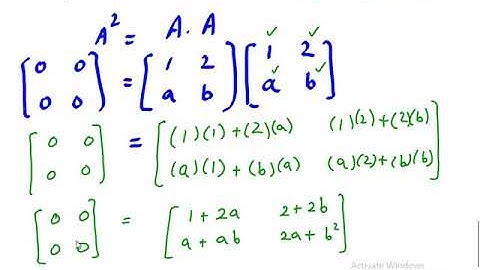 A² = A . A
[0 0; 0 0] = [1 2; a b] [1 2; a b]
[0 0; 0 0] = [(1)(1)+(2)(a) (1)(2)+(2)(b); (a)(1)+(b)(a) (a)(2)+(b)(b)]
[0 0; 0 0] = [1+2a 2+2b; a+ab 2a+b²]
Activate Windows